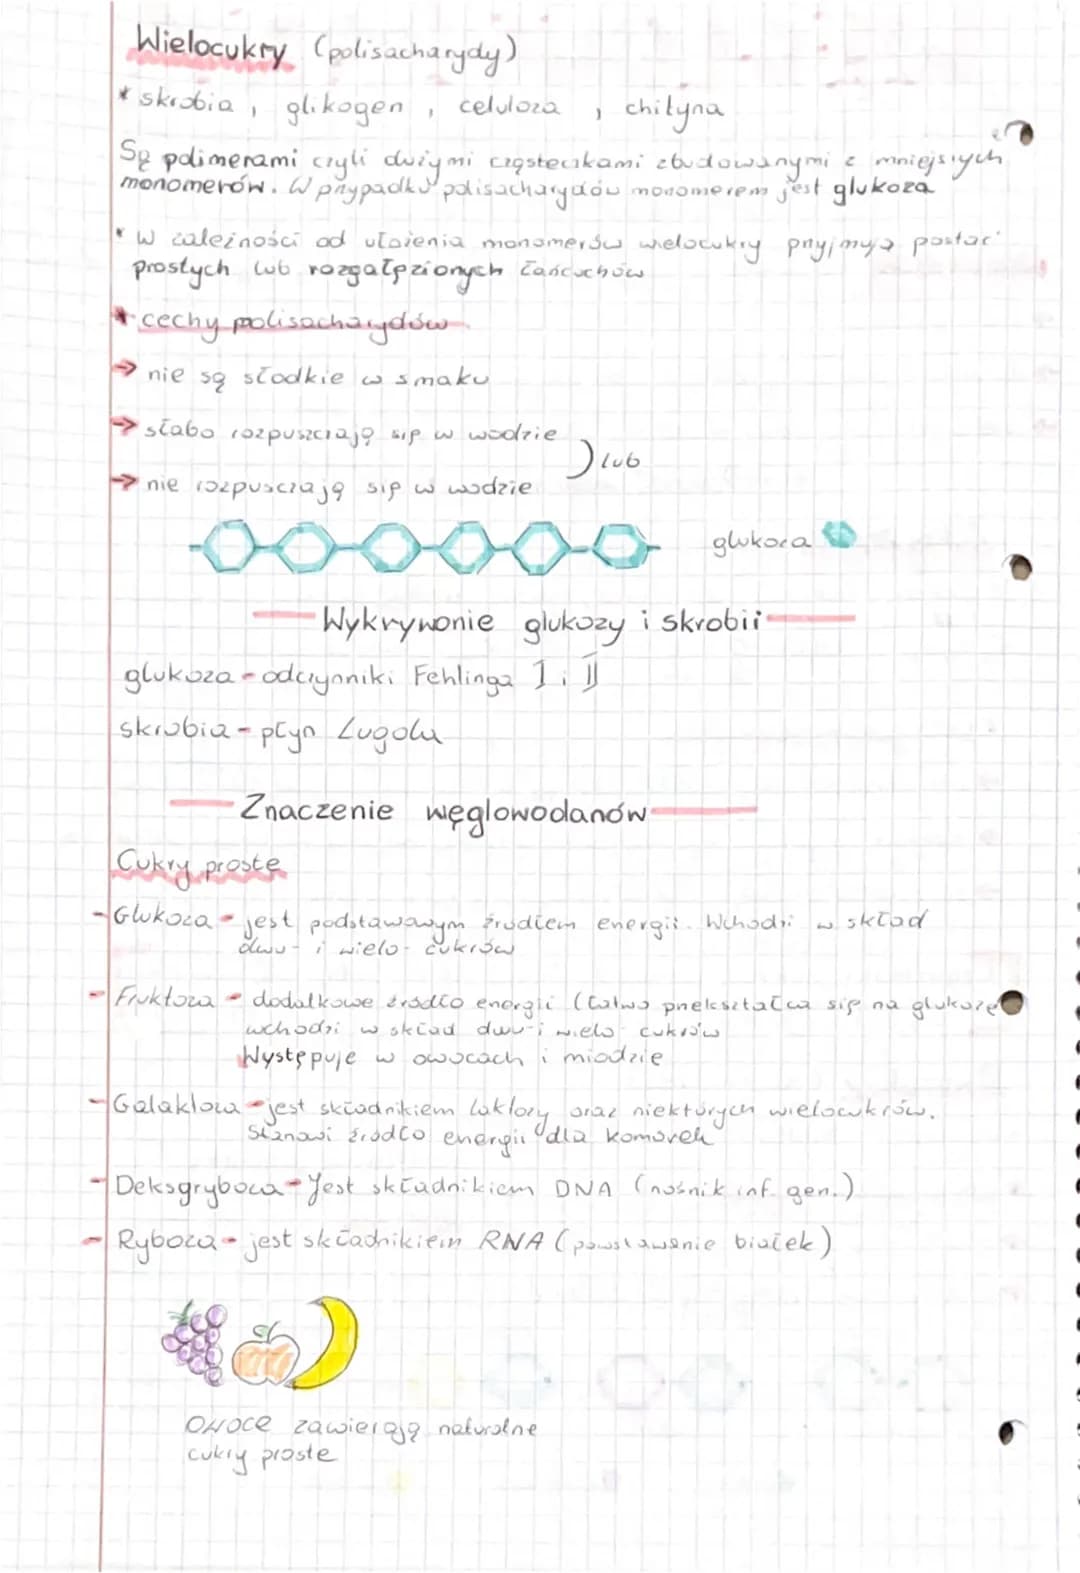 Wielocukry (polisacharydy)
* skrobia, glikogen, celuloza, chityna
Są polimerami czyli dużymi cząsteczkami zbudowanymi z mniejszych
monomerów. W przypadku polisacharydów monomerem jest glukoza
* W zależności od ułożenia monomerów wielocukry przyjmują postać
prostych lub rozgałęzionych łańcuchów
* cechy polisacharydów
→ nie są słodkie w smaku
→ słabo rozpuszczają się w wodzie
) lub
→ nie rozpuszczają się w wodzie
glukoza
Wykrywanie glukozy i skrobii
glukoza - odczynniki Fehlinga I i II
skrobia - płyn Lugola
Znaczenie węglowodanów
Cukry proste
- Glukoza - jest podstawowym źródłem energii. Wchodzi w skład
dwu- i wielo- cukrów
- Fruktoza - dodatkowe źródło energii (łatwo przekształca się na glukozę
wchodzi w skład dwu- i wielo- cukrów
Występuje w owocach i miodzie
- Galaktoza - jest składnikiem laktozy oraz niektórych wielocukrów.
Stanowi źródło energii dla komórek
- Deksgryboza - Jest składnikiem DNA (nośnik inf. gen.)
- Ryboza - jest składnikiem RNA (powstawanie białek)
Owoce zawierają naturalne
cukry proste